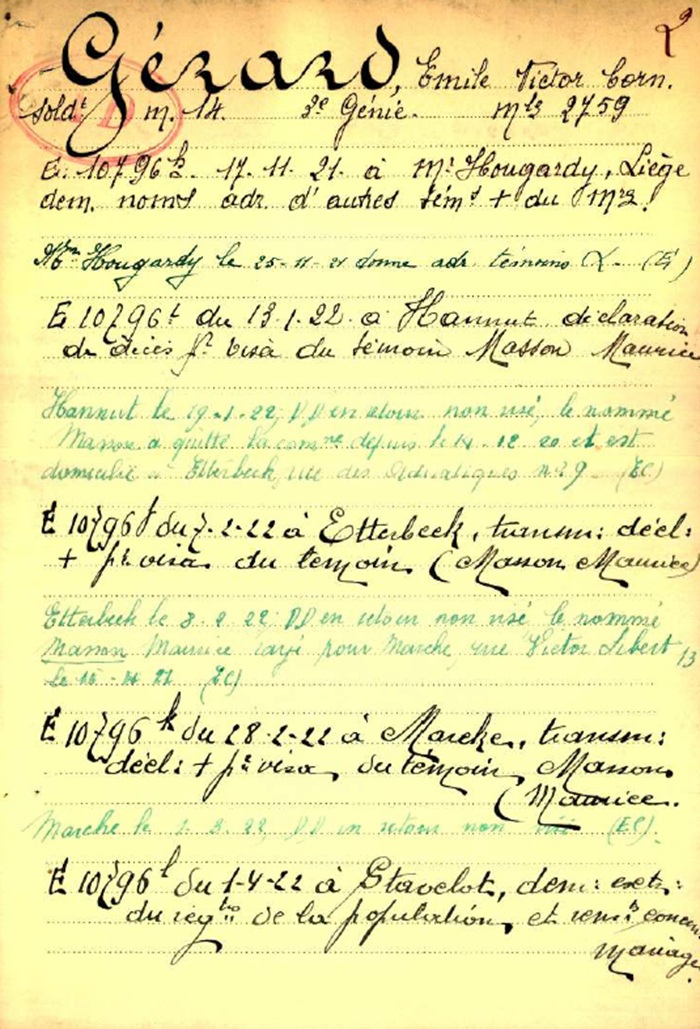 2
Gérard, Emile Victor Corn.
Soldt D m. 14. 3e Génie. mle 2759
E. 10796 h. 17. 11. 21. à Mr Hougardy, Liège
dem. noms adr. d'autres tém. + du
Hougardy le 25-11-21 donne adr témoins (E)
E 10796 i du 13.1.22 à Hannut déclaration
de décès pr visa du témoin Masson Maurice
Hannut le 19-1-22, DD en retour non visé, le nommé
Masson a quitté la comne depuis le 14.12 20 et est
domicilié à Etterbeek, rue des n° 9 (EC)
E 10796 du 7-2-22 à Etterbeek, transm: décl:
+ pr visa du témoin (Masson Maurice)
Etterbeek le 8.2 22, DD en retour non visé le nommé
Masson Maurice rayé pour Marche, rue Victor Libert 13
le 15 - 21 (EC)
E 10796 k du 28-2-22 à Marche, transm:
décl: + pr visa du témoin Masson
(Maurice.
Marche le 2. 3. 22, DD en retour non visé (EC).
E 10796 l du 1-4-22 à Stavelot, dem: extr:
du de la population et concern
mariage.